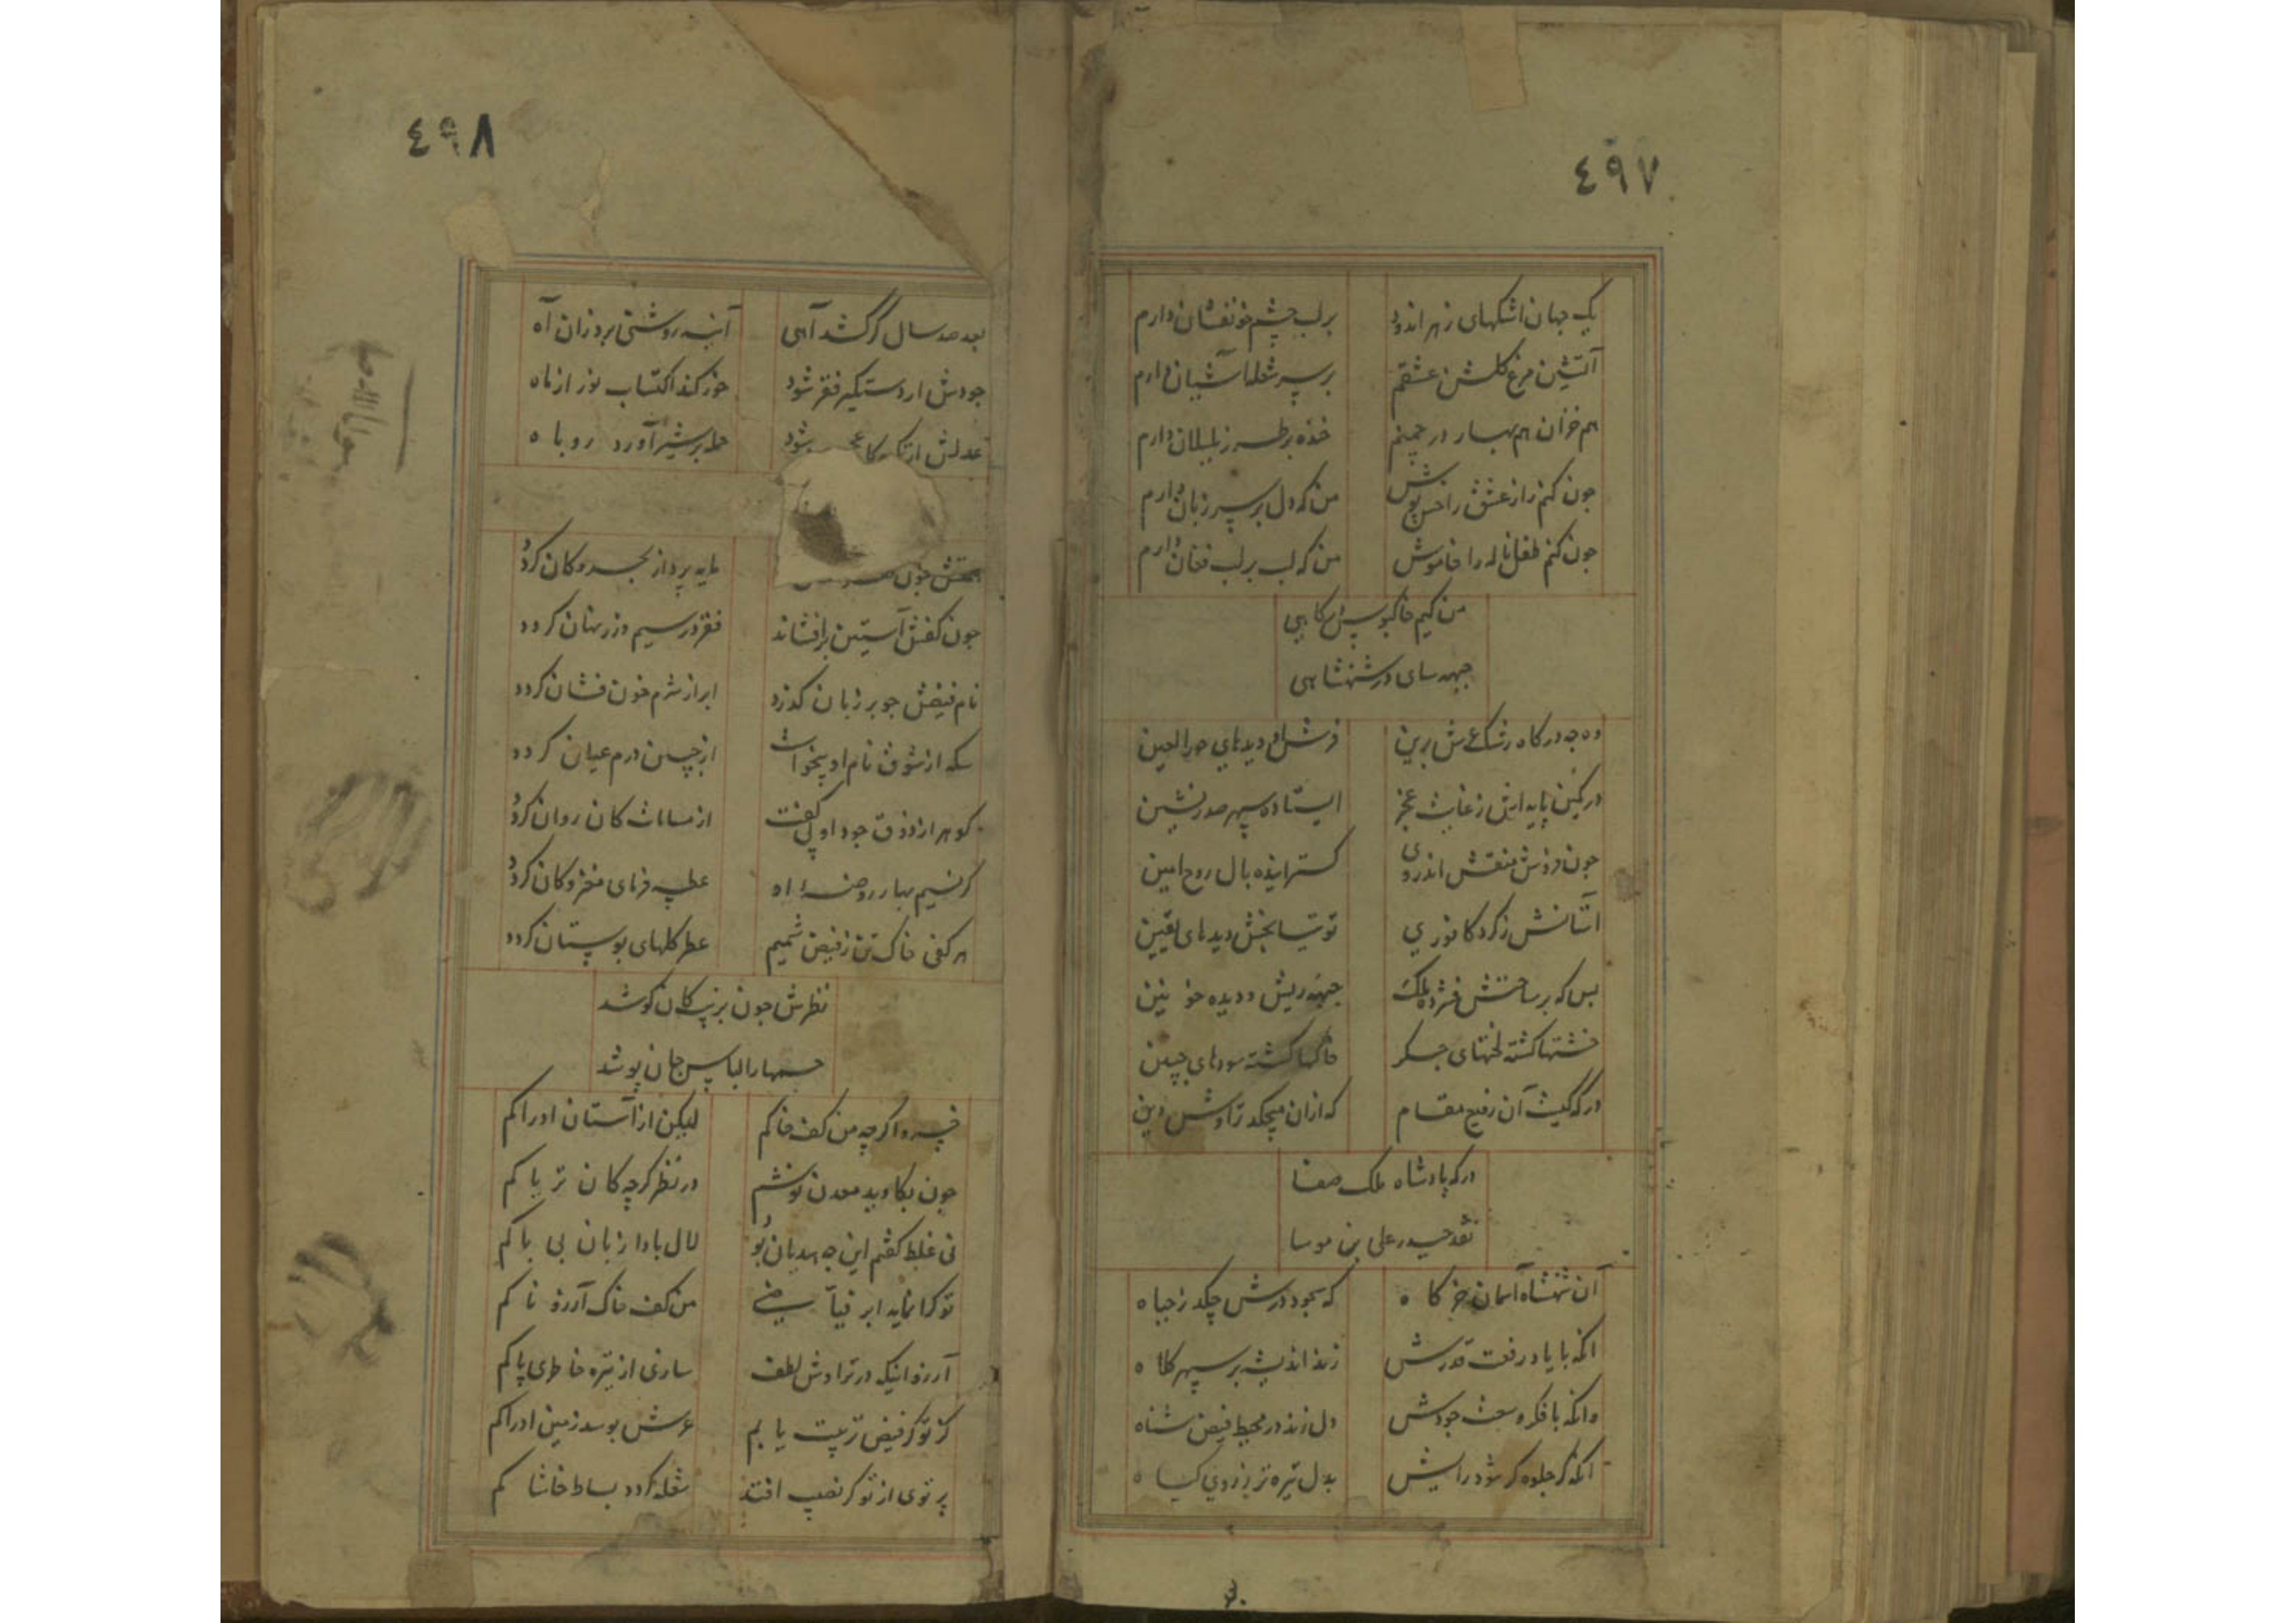 ٤٩٧
یک جهان اشکهای زهر اندود برلب چشم خونفشان دارم
آتشین مرغ گلشن عشقم بر سر شعله آشیان دارم
هم خزان هم بهار در چمنم خنده بر طرز بلبلان دارم
چون کنم راز عشق را خس پوش من که دل بر سر زبان دارم
چون کنم طفل ناله را خاموش من که لب بر لب فغان دارم
من کیم خاکبوس درکاهی
جبهه سای در شهنشاهی
وه چه درکاه رشک عرش برین فرش او دیدهای حور العین
در کمین پایه اش ز غایت عجز ایستاده سپهر صدر نشین
چون فروش منقش اندر وی کسترانیده بال روح امین
آستانش ز کرد کافوری توتیا بخش دیدهای یقین
بس که بر ساحتش فشرده ملک جبهه ریش و دیده خونین
خشتها کشته لختهای جکر خاکها کشته سودهای جبین
درکه کیست آن رفیع مقام که ازان میچکد تراوش دین
درکه پادشاه ملک صفا
نقد حیدر علی بن موسا
آن شهنشاه آسمان خرکاه که سجود درش چکد ز جباه
آنکه با یاد رفعت قدرش زند اندیشه بر سپهر کلاه
وانکه با فکر وسعت جودش دل زند در محیط فیض شناه
آنکه کر جلوه کر شود رایش بدل تیره تر ز روی کیاه
٤٩٨
بعد صد سال کر کشد آهی آینه روشنی برد زان آه
جودش ار دستکیر فقر شود خور کند اکتساب نور از ماه
عدلش ار شود حمله بر شیر آورد روباه
چون مایه پرداز بحر و کان کردد
چون کفش آستین برافشاند فقر در سیم و زر نهان کردد
نام فیضش چو بر زبان کذرد ابر از شرم خون فشان کردد
سکه از شوق نام او بیخواست از جبین درم عیان کردد
کوهر از ذوق جود او بی کفت از مسامات کان روان کردد
کر نسیم بهار روضه او عطسه فرمای مغز کان کردد
هر کفی خاک تن ز فیض شمیم عطر کلهای بوستان کردد
نظرش چون بزیب کان کوشد
جسمها را لباس جان پوشد
خسروا کرچه من کف خاکم لیکن از آستان ادراکم
چون بکاوید معدن نوشم در نظر کرچه کان تریاکم
نی غلط کفتم این چه هذیان بود لال بادا زبان بی باکم
تو کرانمایه ابر نیسانی من کف خاک آرزو ناکم
آرزو اینکه در تراوش لطف سازی از تیره خاطری پاکم
کز تو کر فیض تربیت یابم عرش بوسد زمین ادراکم
پرتوی از تو کر نصیب افتد شعله کردد بساط خاشاکم